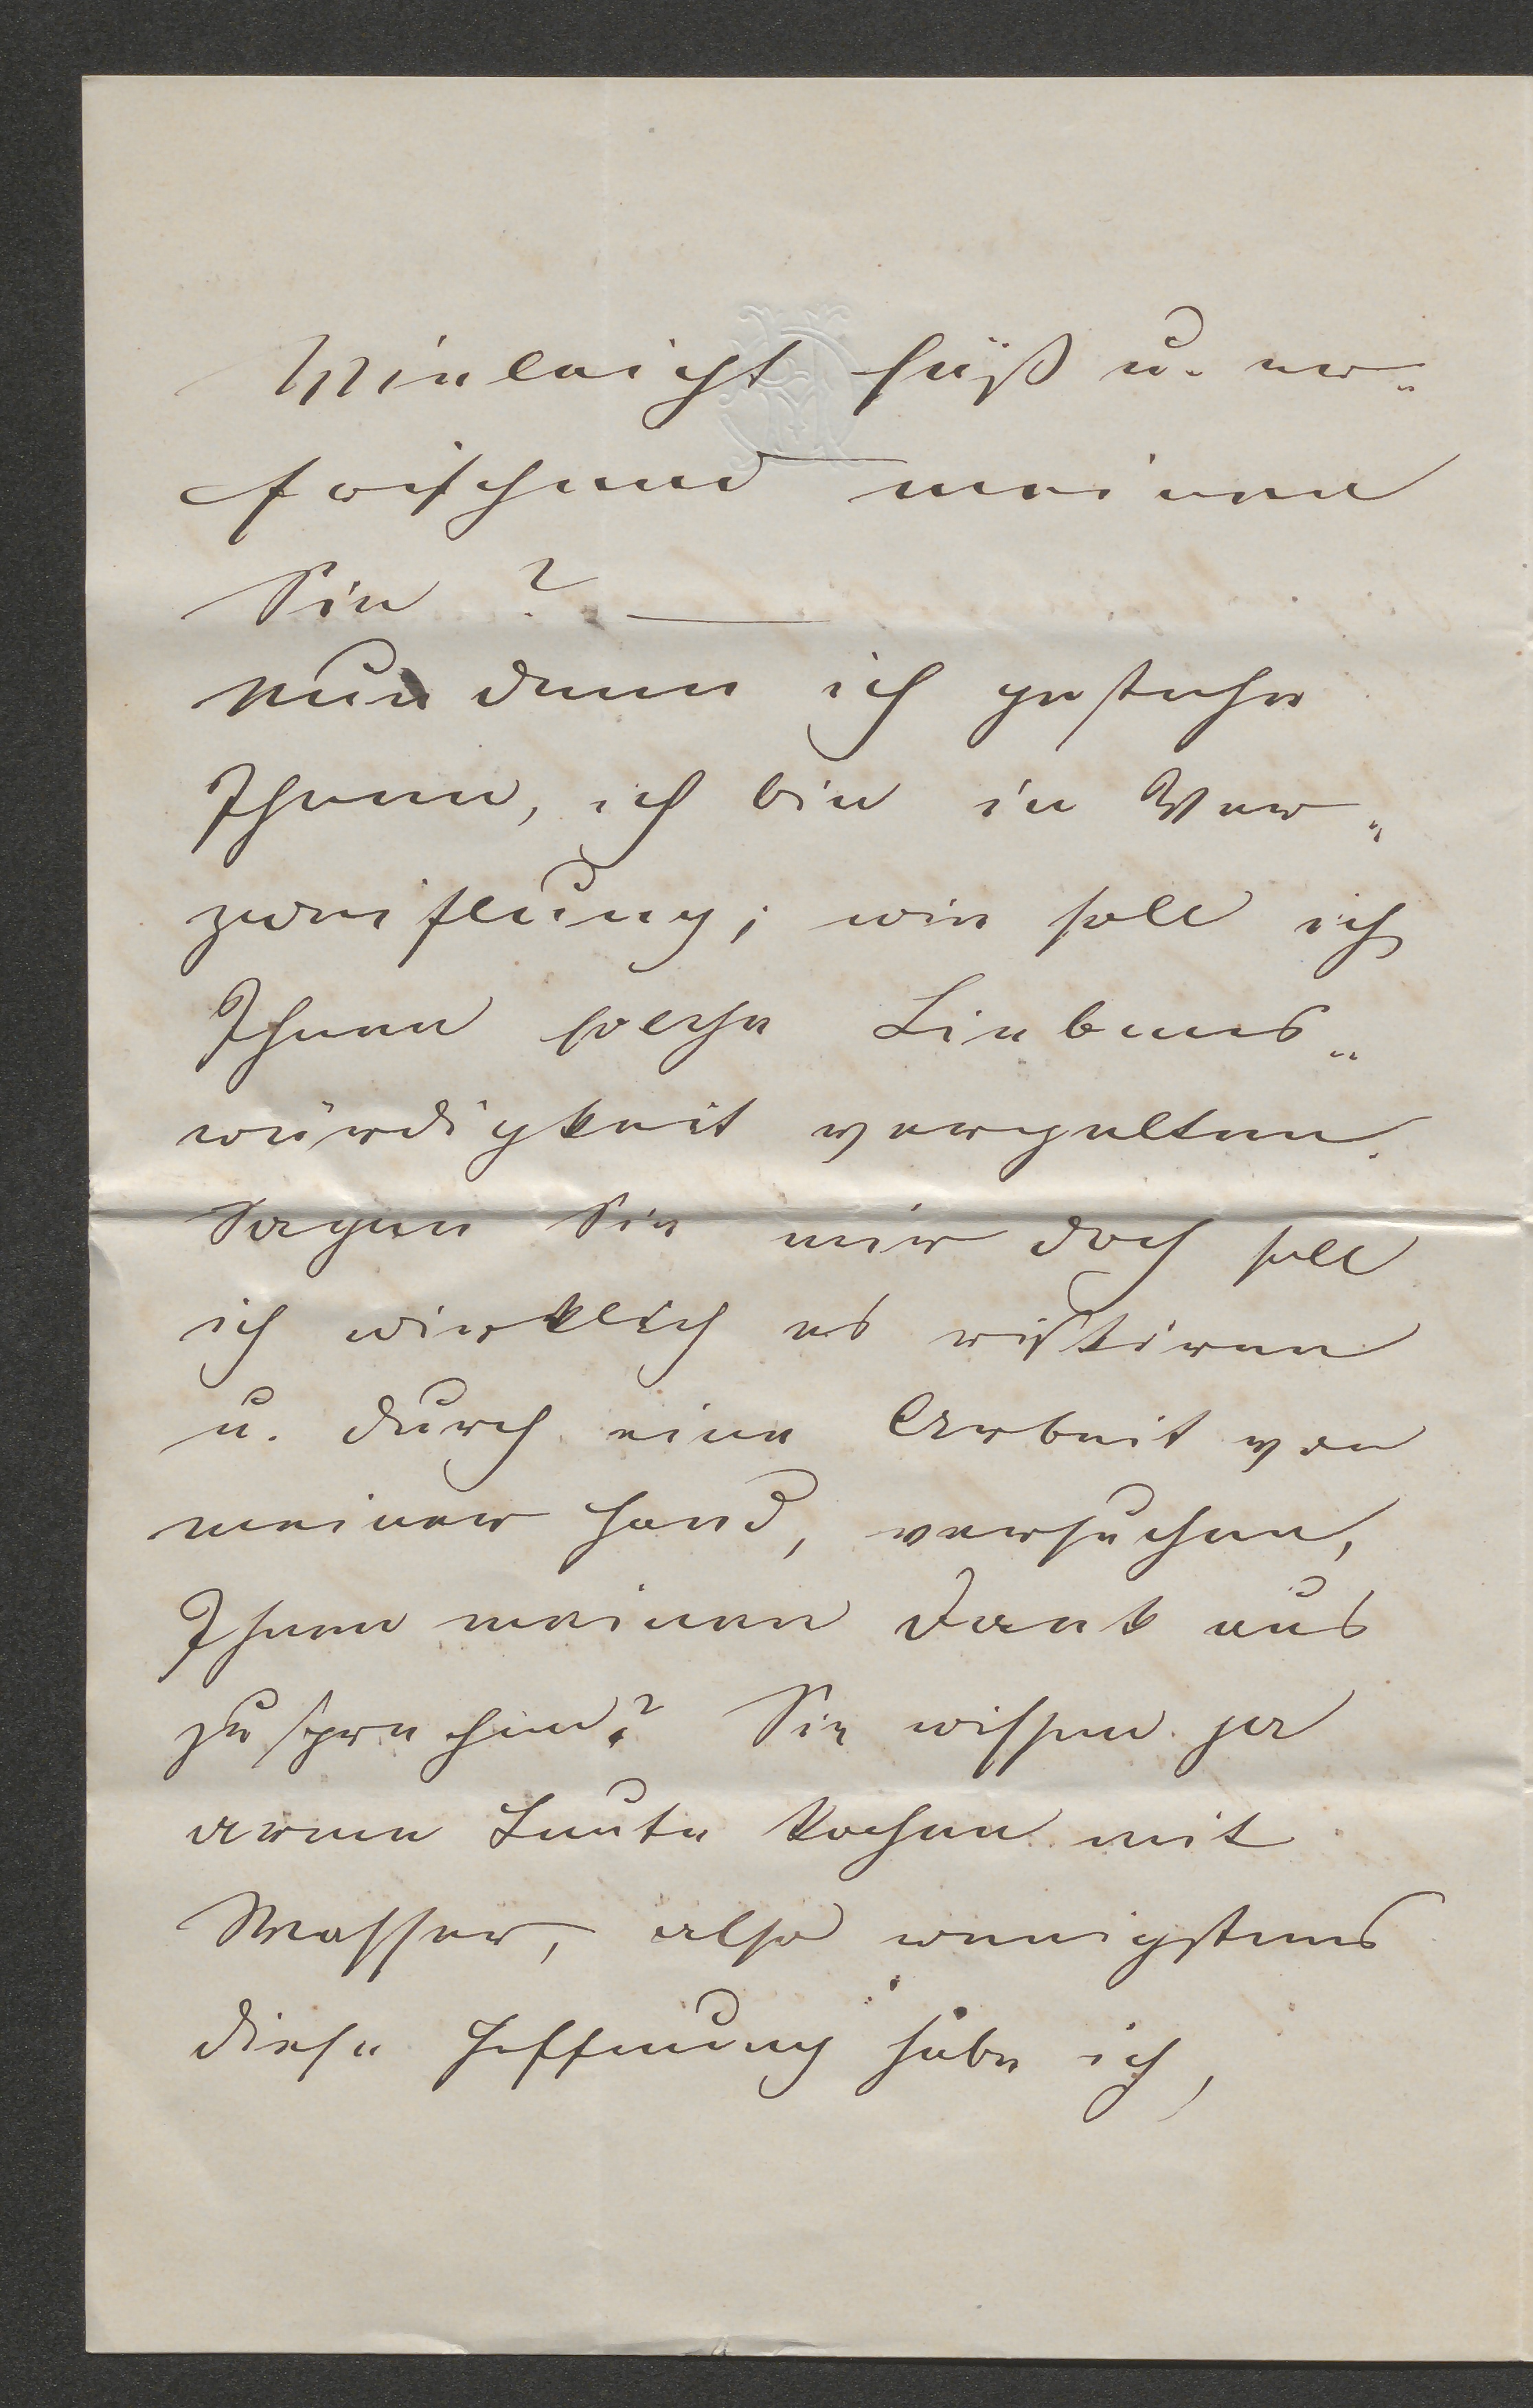 Vieleicht süß u. er-
frischend meinen
Sie? —
nun denn ich gestehe
Ihnen, ich bin in Ver-
zweiflung; wie soll ich
Ihnen solche Liebens-
würdigkeit vergelten.
Sagen Sie mir doch soll
ich wirklich es riskiren
u. durch eine Arbeit von
meiner Hand, versuchen,
Ihnen meinen Dank aus
zusprechen? Sie wissen ja
arme Leute kochen mit
Wasser, also wenigstens
diese Hoffnung habe ich,